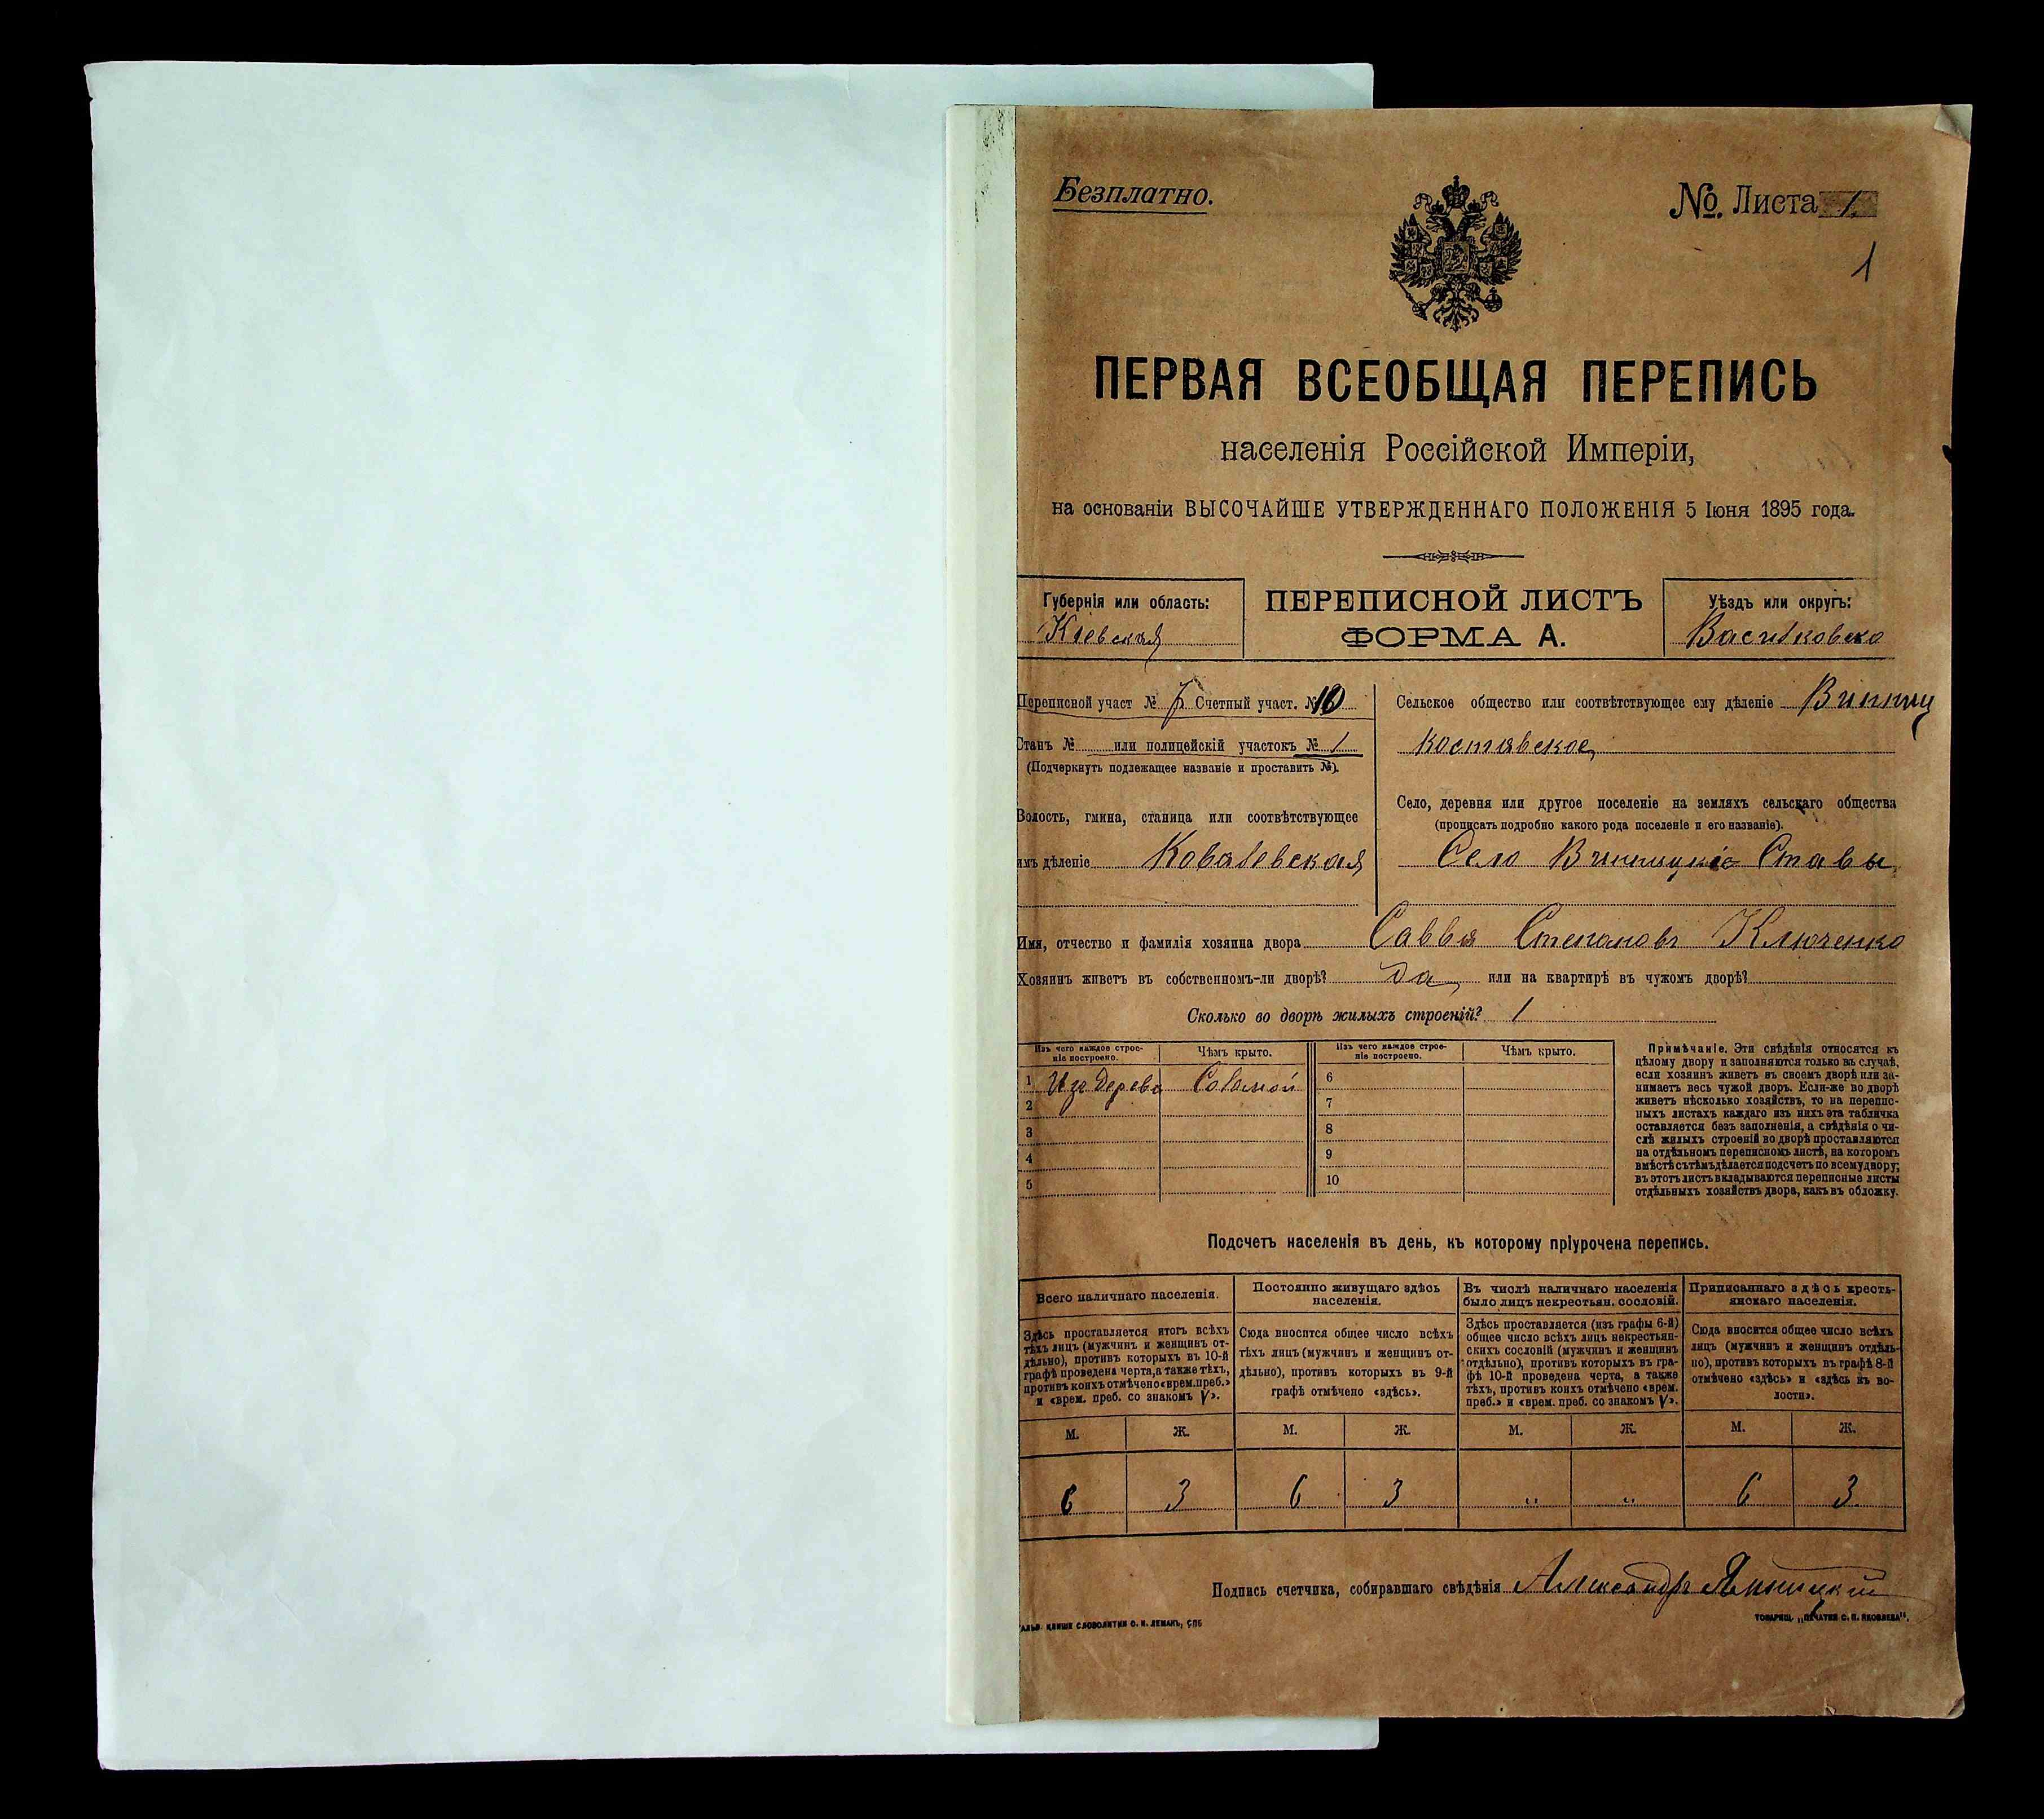 Безплатно.
№. Листа 1.
1
ПЕРВАЯ ВСЕОБЩАЯ ПЕРЕПИСЬ
населенія Россійской Имперіи,
на основаніи ВЫСОЧАЙШЕ УТВЕРЖДЕННАГО ПОЛОЖЕНІЯ 5 Іюня 1895 года.
Губернія или область:
Кіевская
ПЕРЕПИСНОЙ ЛИСТЪ
ФОРМА А.
Уѣздъ или округъ:
Васильковско
Переписной участ № Счетный участ. № 10
Станъ № или полицейскій участокъ № 1
(Подчеркнуть подлежащее названіе и проставить №).
Волость, гмина, станица или соотвѣтствующее
имъ дѣленіе Ковалевская
Сельское общество или соотвѣтствующее ему дѣленіе Винниц
коставское
Село, деревня или другое поселеніе на земляхъ сельскаго общества
(прописать подробно какого рода поселеніе и его названіе).
Село Винницкіе Ставы
Имя, отчество и фамилія хозяина двора Савва Степановъ Ключенко
Хозяинъ живетъ въ собственномъ-ли дворѣ? да, или на квартирѣ въ чужомъ дворѣ?
Сколько во дворѣ жилыхъ строеній? 1
Изъ чего каждое строе-
ніе построено.
Чѣмъ крыто.
1 Изъ дерева Соломой
2
3
4
5
Изъ чего каждое строе-
ніе построено.
Чѣмъ крыто.
6
7
8
9
10
Примѣчаніе. Эти свѣдѣнія относятся къ
цѣлому двору и заполняются только въ случаѣ,
если хозяинъ живетъ въ своемъ дворѣ или за-
нимаетъ весь чужой дворъ. Если-же во дворѣ
живетъ нѣсколько хозяйствъ, то на перепис-
ныхъ листахъ каждаго изъ нихъ эта табличка
оставляется безъ заполненія, а свѣдѣнія о чи-
слѣ жилыхъ строеній во дворѣ проставляются
на отдѣльномъ переписномъ листѣ, на которомъ
вмѣстѣ съ тѣмъ дѣлается подсчетъ по всему двору;
въ этотъ листъ вкладываются переписные листы
отдѣльныхъ хозяйствъ двора, какъ въ обложку.
Подсчетъ населенія въ день, къ которому пріурочена перепись.
Всего наличнаго населенія.
Здѣсь проставляется итогъ всѣхъ
тѣхъ лицъ (мужчинъ и женщинъ от-
дѣльно), противъ которыхъ въ 10-й
графѣ проведена черта, а также тѣхъ,
противъ коихъ отмѣчено «врем. преб.»
и «врем. преб. со знакомъ V».
М. Ж.
6 3
Постоянно живущаго здѣсь
населенія.
Сюда вносится общее число всѣхъ
тѣхъ лицъ (мужчинъ и женщинъ от-
дѣльно), противъ которыхъ въ 9-й
графѣ отмѣчено «здѣсь».
М. Ж.
6 3
Въ числѣ наличнаго населенія
было лицъ некрестьян. сословій.
Здѣсь проставляется (изъ графы 6-й)
общее число всѣхъ лицъ некрестьян-
скихъ сословій (мужчинъ и женщинъ
отдѣльно), противъ которыхъ въ гра-
фѣ 10-й проведена черта, а также
тѣхъ, противъ коихъ отмѣчено «врем.
преб.» и «врем. преб. со знакомъ V».
М. Ж.
" "
Приписаннаго здѣсь кресть-
янскаго населенія.
Сюда вносится общее число всѣхъ
лицъ (мужчинъ и женщинъ отдѣль-
но), противъ которыхъ въ графѣ 8-й
отмѣчено «здѣсь» и «здѣсь въ во-
лости».
М. Ж.
6 3
Подпись счетчика, собиравшаго свѣдѣнія Александръ
КЛИШЕ СЛОВОЛИТНИ О. И. ЛЕМАНЪ, СПБ
ТОВАРИЩ. „ПЕЧАТНЯ С. П. ЯКОВЛЕВА".